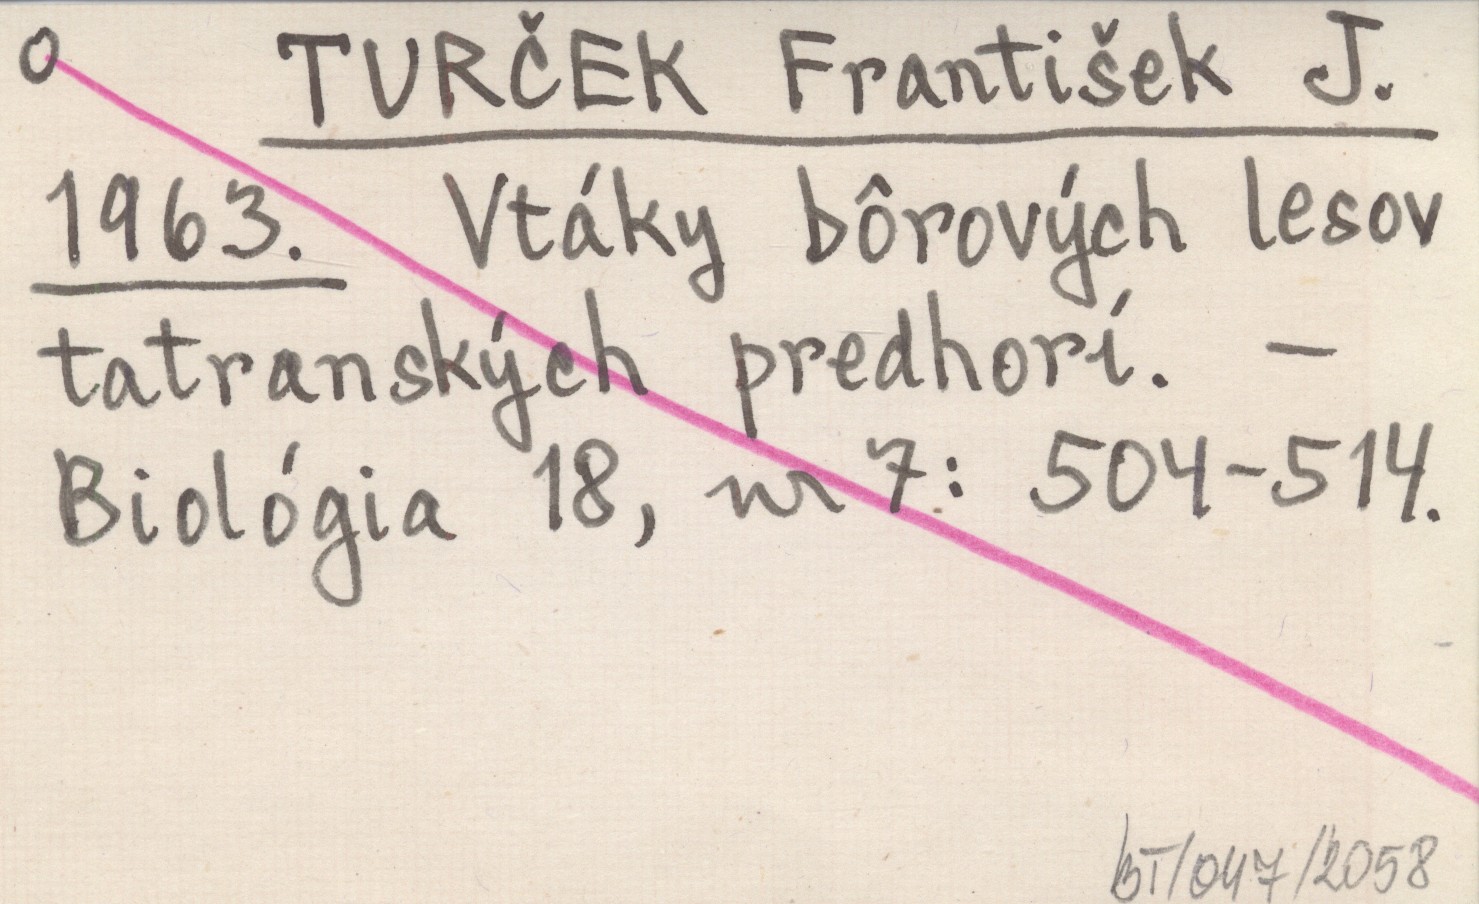 O TURČEK František J.
1963. Vtáky bôrových lesov
tatranských predhorí. –
Biológia 18, nr 7: 504-514.
BT/047/2058